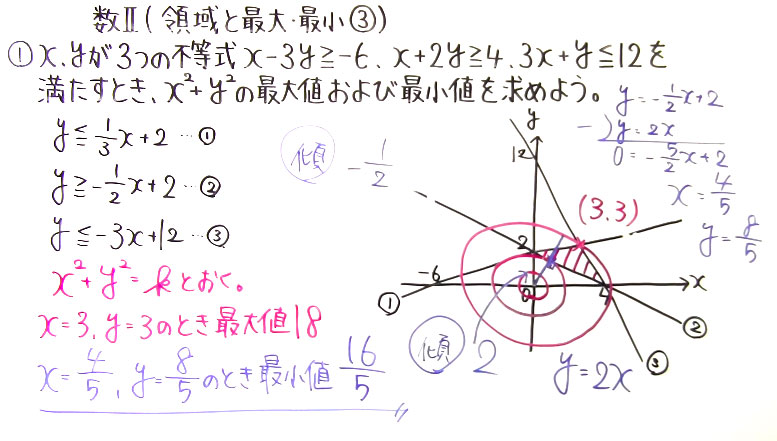 数Ⅱ(領域と最大・最小③)
① x、yが3つの不等式 x-3y≧-6、x+2y≧4、3x+y≦12を
満たすとき、x²+y²の最大値および最小値を求めよう。
y≦1/3x+2…①
y≧-1/2x+2…②
y≦-3x+12…③
x²+y²=kとおく。
x=3、y=3のとき最大値18
x=4/5、y=8/5のとき最小値16/5
傾 -1/2
y=-1/2x+2
-)y=2x
0=-5/2x+2
x=4/5
y=8/5
y
12
(3.3)
2
-6
0
4
x
①
②
③
傾 2
y=2x